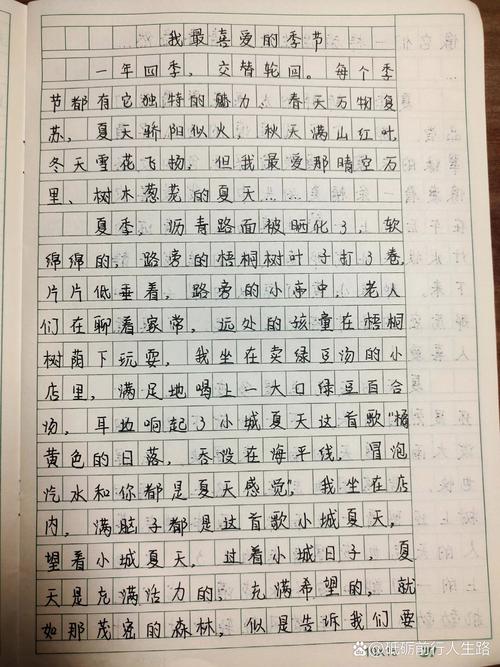 我最喜爱的季节
一年四季，交替轮回。每个季
节都有它独特的魅力，春天万物复
苏，夏天骄阳似火，秋天满山红叶，
冬天雪花飞扬，但我最爱那晴空万
里、树木葱茏的夏天……
夏季，沥青路面被晒化了，软
绵绵的，路旁的梧桐树叶子打了卷，
片片低垂着，路旁的小亭中，老人
们在聊着家常，远处的孩童在梧桐
树荫下玩耍，我坐在卖绿豆汤的小
店里，满足地喝上一大口绿豆百合
汤，耳边响起了小城夏天这首歌“橘
黄色的日落，吞没在海平线，冒泡
汽水和你都是夏天感觉”，我坐在店
内，满脑子都是这首歌小城夏天，
望着小城夏天，过着小城日子，夏
天是充满活力的，充满希望的，就
如那茂密的森林，似是告诉我们要
@砥砺前行人生路